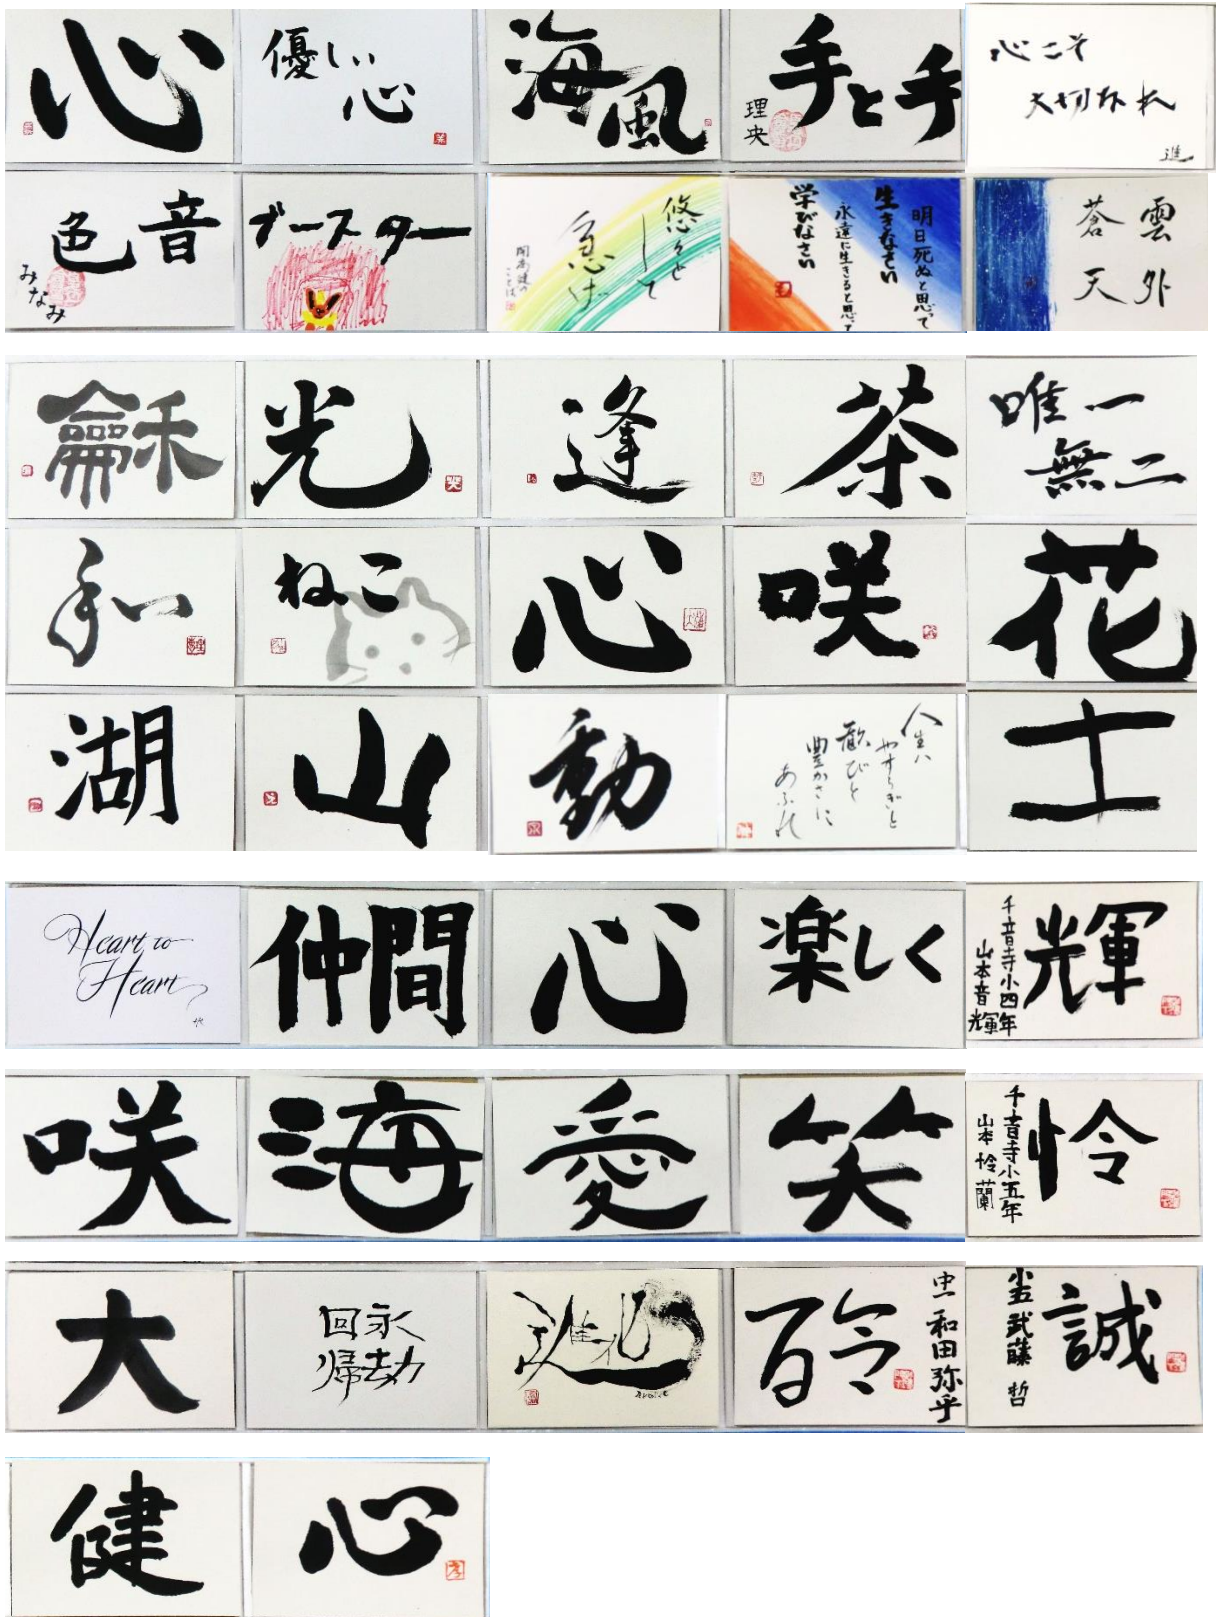 心
優しい
心
海風
手と手
理央
心こそ
大切なれ
進
音色
みなみ
ブースター
悠々と
して
急げ
開高健の
ことば
明日死ぬと思って
生きなさい
永遠に生きると思って
学びなさい
雲外
蒼天
龢
光
逢
茶
唯一
無二
和
ねこ
心
咲
花
湖
山
動
人生は
やすらぎと
歓びと
豊かさに
あふれ
士
Heart to
Heart
仲間
心
楽しく
輝
千音寺小四年
山本音輝
咲
海
愛
笑
怜
千音寺小五年
山本怜蘭
大
永劫
回帰
進化
evolve
百
令
中一 和田弥乎
誠
小五 武藤哲
健
心